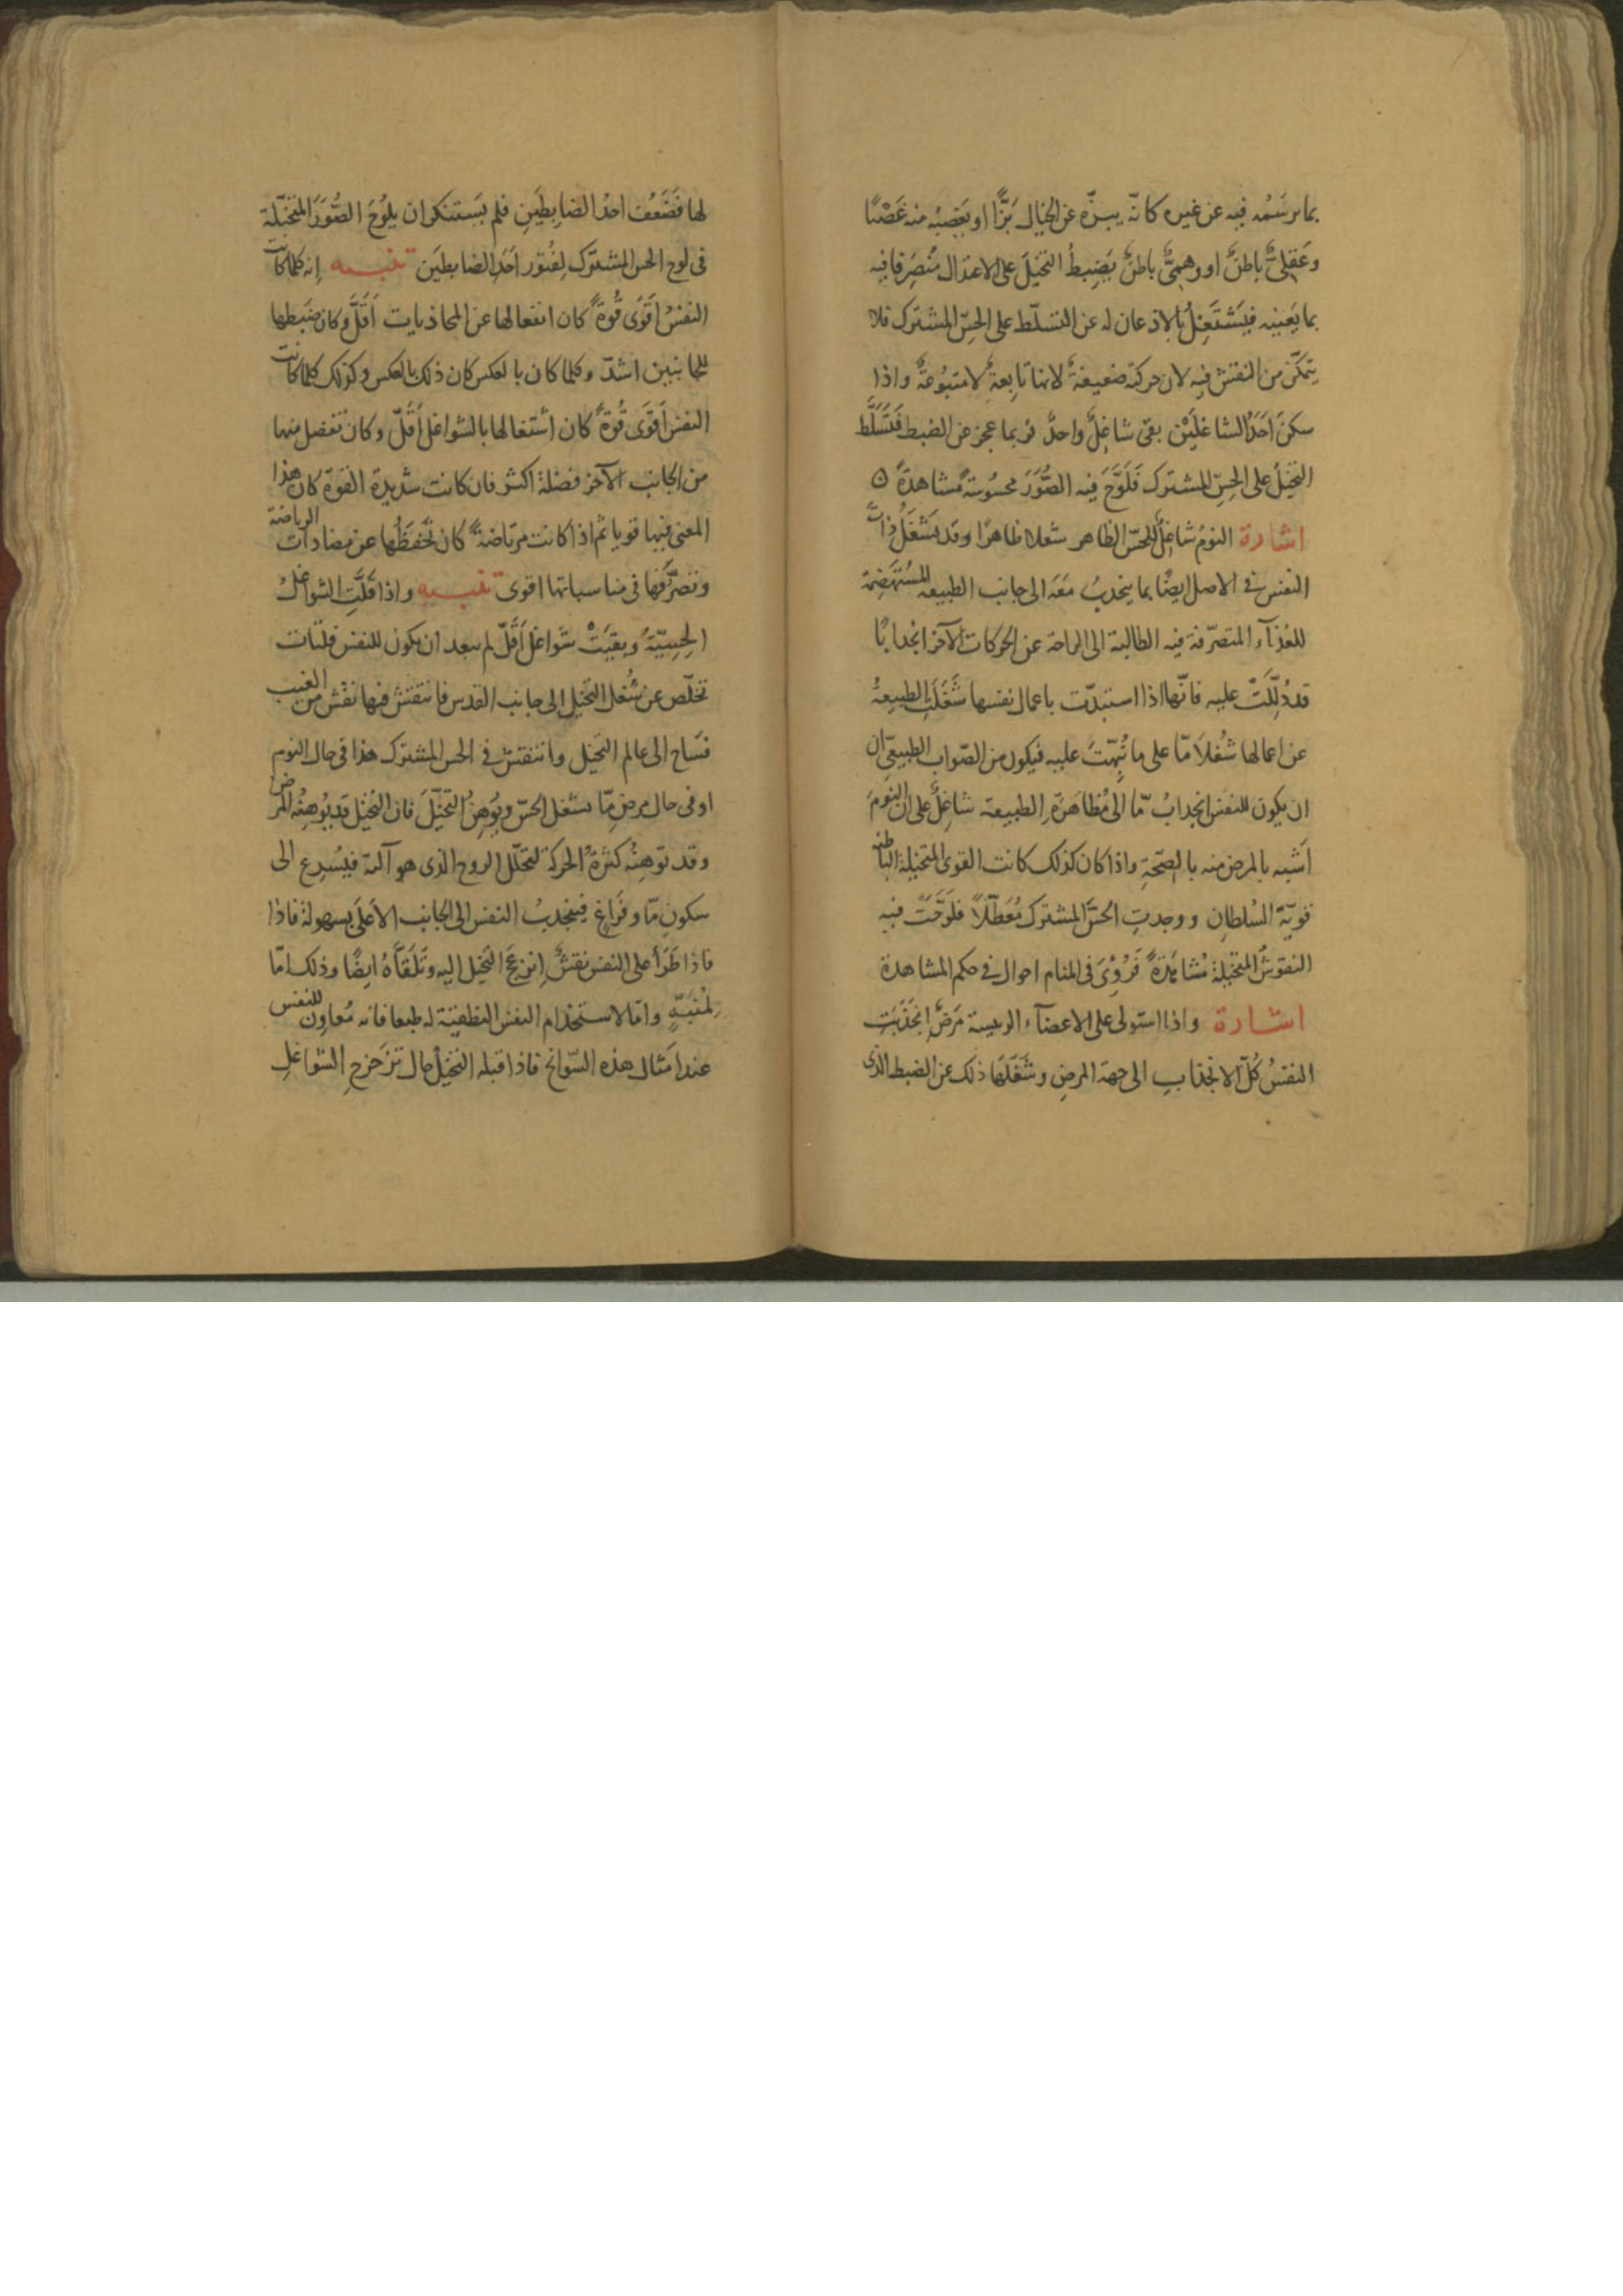 بما يرسمه فيه عن غيره كانّه يبزّه عن الخيال بَزًّا او يغصبه منه غصبًا
وعَقلىٌّ باطنٌ او وهمىٌّ باطنٌ يَضبِطُ التخيلَ على الاعتمال مُتصرِّفا فيه
بما يَعنيه فيَشتَغِلُ بالاذعان له عن التسلّط على الحسّ المشترك فلا
يتمكّن من النقش فيه لان حركته ضعيفةٌ لانها تابعةٌ لا متبُوعةٌ واذا
سكنَ اَحَدُ الشاغلَيْن بقى شاغلٌ واحدٌ فربما عجز عن الضبط فتَسَلَّط
التخيلُ على الحِسّ المشترك فَلَوَّحَ فيه الصُّوَرَ محسُوسَةً مشاهدةً ه
اشارة النومُ شاغلٌ للحسّ الظاهر شغلا ظاهرًا وقد يَشغَلُ ذاتَ
النفس فى الاصل ايضًا بما ينجذبُ مَعَه الى جانب الطبيعه المُستَهضِمة
للغذآء المتصرّفة فيه الطالبة الى الراحة عن الحركات الآخر انجذابًا
قد دُلِلتَ عليه فانّها اذا استبدّت باعمال نفسها شَغَلَتِ الطبيعةُ
عن اعمالها شُغلاً مّا على ما نُبِّهتَ عليه فيكون من الصّواب الطبيعىّ ان
ان يكون للنفس انجذابٌ مّا الى مُظاهَرَةِ الطبيعة شاغِلٌ على ان النومَ
اَشبه بالمرض منه بالصّحّةِ واذا كان كذلك كانت القوى المتخيلة الباطنة
قويّة السُلطان ووجدتِ الحسَّ المشترك مُعَطَّلاً فلَوَّحَتْ فيه
النقوشَ المتخيلة مُشاهَدَةً فَرُؤِىَ فى المنام احوال فى حكم المشاهدة
اشارة واذا استولى على الاعضآء الرئيسة مَرَضٌ انجَذَبَتِ
النفسُ كُلّ الانجذابِ الى جهة المرض وشَغَلَها ذلك عن الضبط الذى
لها فَضَعُفَ احدُ الضابِطَينِ فلم يَستنكر ان يلُوحَ الصُّوَرَ المتخيّلة
فى لوح الحس المشترك لفُتور اَحَدِ الضابطَين تنبيه اِنه كلما كانت
النفسُ اَقوَى قُوةً كان انفعالها عن المحاذبات اَقَلَّ وكان ضبطها
للجانبين اشدّ وكلما كان بالعكس كان ذلك بالعكس وكذلك كلما كانت
النفس اَقوَى قُوةً كان اشتغالها بالشواغل اَقَلّ وكان تفضل منها
من الجانب الآخر فضلة اكثر فان كانت شديدة القوّة كان هذا
المعنى فيها قويا ثم اذا كانت مرتاضةً كان تَحفّظُها عن مضادات الرياضة
وتَصرّفُها فى مناسباتها اقوى تنبيه واذا قَلَّتِ الشواغلُ
الحِسِيّةُ وبقيَتْ شواغل اَقَلّ لم يبعد ان يكون للنفس فلتات
تخلّص عن شُغل التخيل الى جانب القدس فانتقش فيها نقش من الغيب
فسَاح الى عالم التخيل وانتقش فى الحس المشترك هذا فى حال النوم
او فى حال مرضٍ مّا يشغل الحسّ ويُوهِنُ التخيّلَ فان التخيّل قد يُوهِنُه المرضُ
وقد توهِنُه كثرةُ الحركة لتحلّل الروح الذى هو آلته فيُسرِع الى
سكونٍ مّا وفَراغٍ فينجذبُ النفس الى الجانب الاَعلى بسهولة فاذا
فاذا طَرَأ على النفس نقشٌ اِنزعج التخيل اليه وتَلَقّاهُ ايضًا وذلك امّا
لمُنَبِّهٍ وامّا لاستخدام النفس النطقيّة له طبعا فانه مُعاوِن للنفس
عند امثال هذه السّوانح فاذا قبله التخيلُ حال تزَحزحِ الشواغلِ